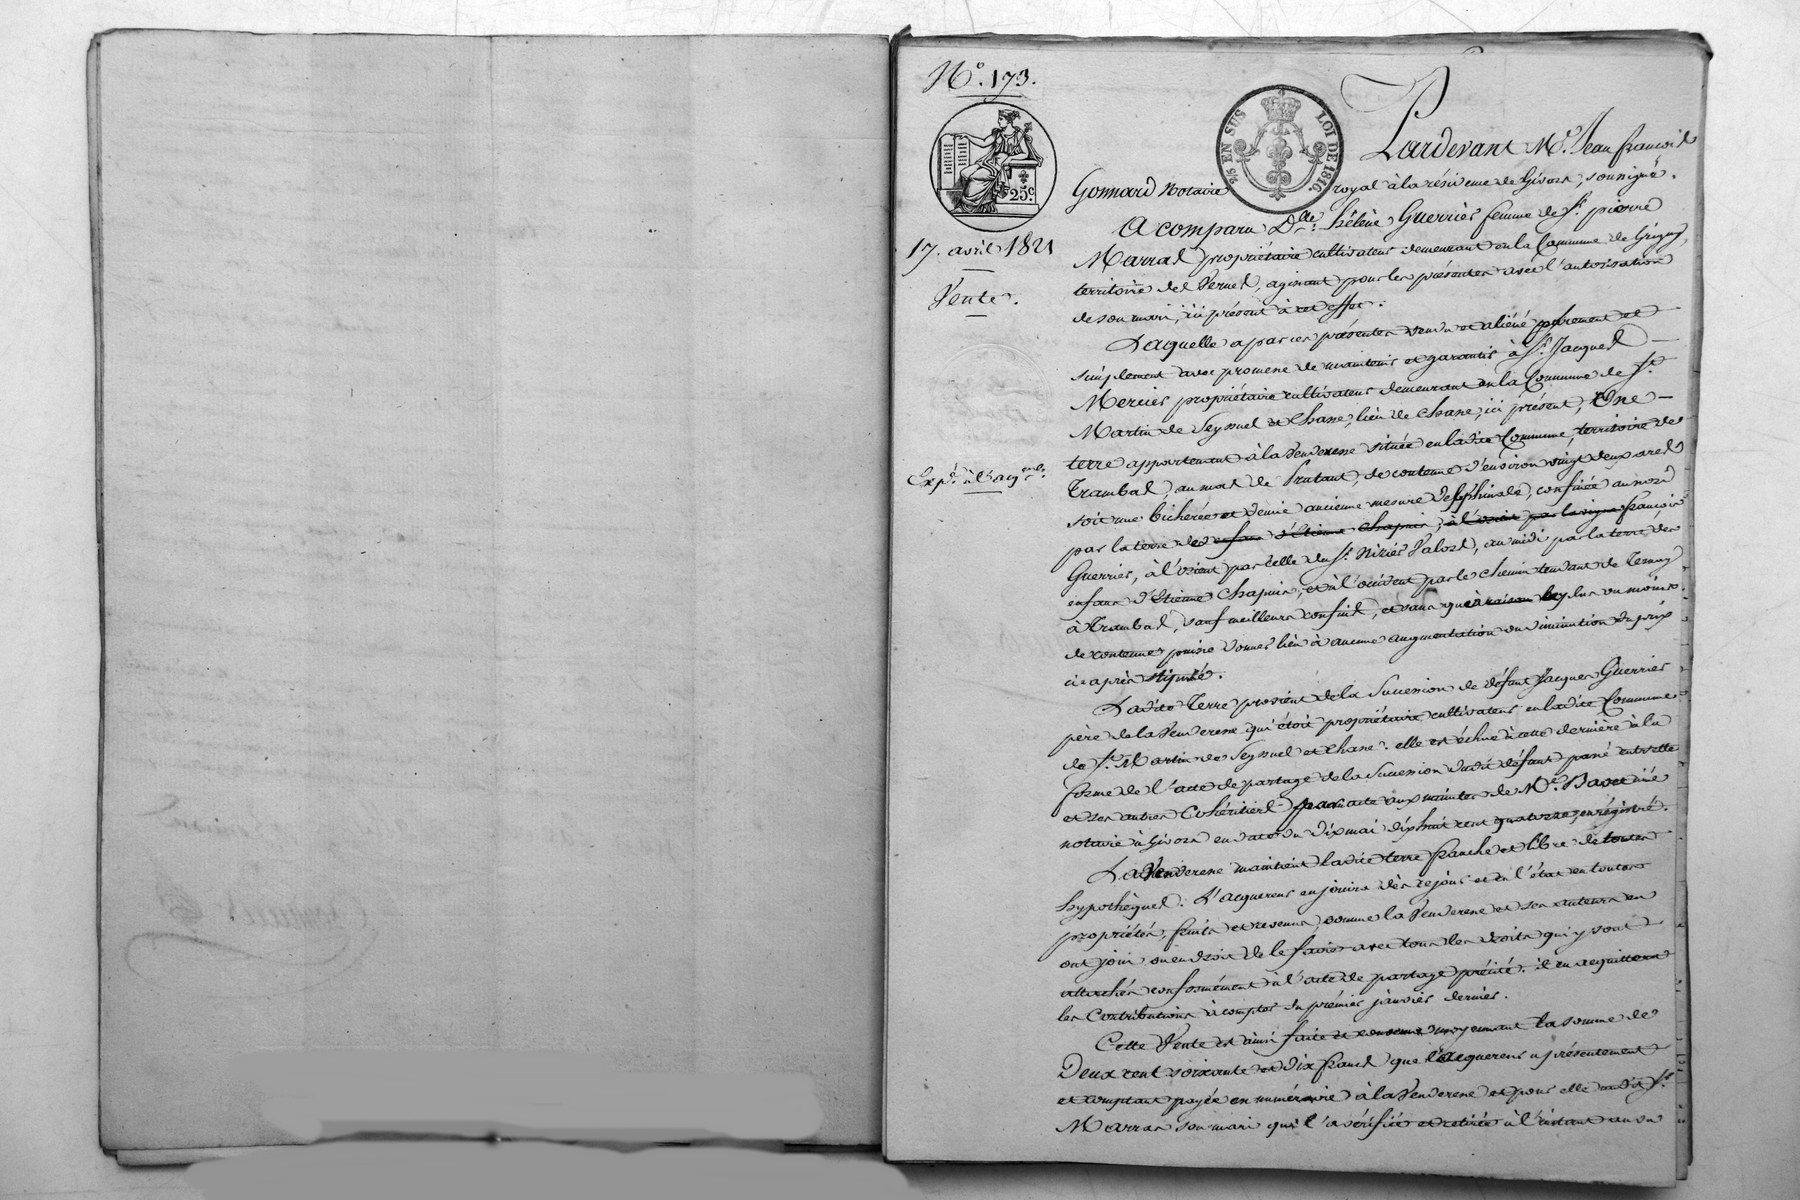 N.° 173.
5/6 EN SUS
LOI DE 1816.
25.c
17. avril 1821
Vente.
Exp.on à l'acq.
Pardevant M.e Jean françois
Gonnard Notaire royal à la résidence de Givors, soussigné.
A comparu D.lle hélène Guerrier femme de S.r pierre
Marras propriétaire cultivateur demeurant en la Commune de Grigny,
territoire del Vernel, agissant pour les présentes avec l'autorisation
de son mari, ici présent à cet effet.
Laquelle a par ces présentes vendu et aliéné purement et
simplement avec promesse de maintenir et garantir à S.r Jacques
Mercier propriétaire cultivateur demeurant en la Commune de S.t
Martin de Seyssuel et Chasse, lieu de Chasse, ici présent, Une
terre appartenant à la Venderesse située en ladite Commune, territoire de
Trambas, au mas de Prutant, de contenue d'environ vingt deux ares
soit une bicherée et demie ancienne mesure delphinale, confinée au nord
par la terre des enfans d'Etienne Chapuis, à l'orient par la vigne françois
Guerrier, à l'orient par celle du S.r Nizier Valors, au midi par la terre des
enfans d'Etienne Chapuis, et à l'occident par le chemin tendant de Ternay
à Trambas, sauf meilleurs confins, et sans qu'à raison du plus ou moins
de contenue puisse donner lieu à aucune augmentation ou diminution du prix
ci-après stipulé.
Ladite Terre provient de la Succession de défunt Jacques Guerrier
père de la Venderesse qui étoit propriétaire cultivateur en ladite Commune
de S.t Martin de Seyssuel et Chasse. elle est échue à cette dernière à la
forme de l'acte de partage de la Succession dudit défunt passé entr'elle
et ses autres Cohéritiers par acte aux minutes de M.e notaire à Givors en date du dix mai dix huit cent quatorze, enrégistré.
La Venderesse maintient ladite terre franche et libre de toutes
hypothèques. L'acquereur en jouira dès ce jour et en l'état en toutes
propriétés, fruits et revenus, comme la Venderesse et ses auteurs en
ont joui ou eu droit de le faire avec tous les droits qui y sont
attachés conformément à l'acte de partage précité. il en acquittera
les Contributions à compter du prémier janvier dernier.
Cette Vente est ainsi faite et convenue moyennant la somme de
Deux cent soixante et dix francs que l'acquereur a présentement
et comptant payée en numéraire à la Venderesse et pour elle audit S.r
Marras son mari qui l'a vérifiée et retirée à l'instant au vu